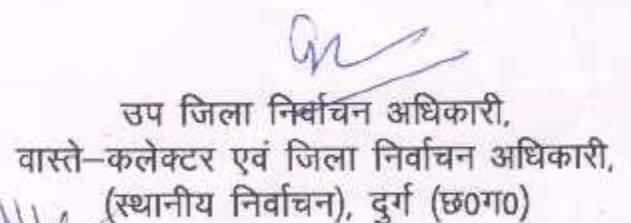 उप जिला निर्वाचन अधिकारी,
वास्ते–कलेक्टर एवं जिला निर्वाचन अधिकारी,
(स्थानीय निर्वाचन), दुर्ग (छ0ग0)